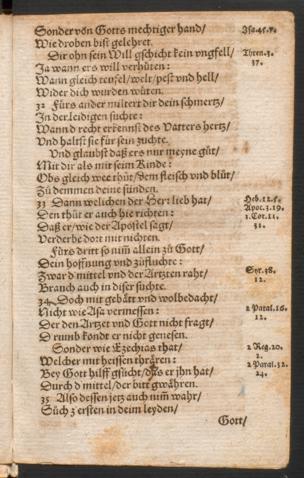 Sonder võn Gotts mechtiger hand/
Wie droben bist gelehret.
Dir ohn sein Will gschicht kein vngfell/
Ja wann ers will verhüten:
Wann gleich teufel/welt/pest vnd hell/
Wider dich wurden wüten.
32 Fürs ander miltert dir dein schmertz/
In der leidigen suchte:
Wann d recht erkennst des Vatters hertz/
Vnd haltst sie für sein zuchte.
Vnd glaubst daß ers nur meyne güt/
Mit dir als mit seim Kinde:
Obs gleich wee thüt/dem fleisch vnd blüt/
Zü demmen deine sünden.
33 Dann welichen der Herr lieb hat/
Den thüt er auch hie richten:
Daß er/wie der Apostel sagt/
Verderbe dort mit nichten.
Fürs drit so nim̃ allein zü Gott/
Dein hoffnung vnd züfluchte:
Zwar d mittel vnd der Artzten raht/
Brauch auch in diser suchte.
34 Doch mit gebätt vnd wolbedacht/
Nicht wie Asa vermessen:
Der den Artzet vnd Gott nicht fragt/
Drumb kondt er nicht genesen.
Sonder wie Ezechias that/
Welcher mit heissen thrären:
Bey Gott hilff gsücht/das er jhn hat/
Durch d mittel/der bitt gwähren.
35 Also dessen jetz auch nim̃ wahr/
Süch z ersten in deim leyden/
Gott/
Isa. 45. 7.
Thren. 3.
37.
Heb. 12. 5.
Apoc. 3. 19.
1. Cor. 11.
31.
Syr. 38.
12.
2 Paral. 16.
12.
2 Reg. 20.
2.
2 Paral. 32.
24.